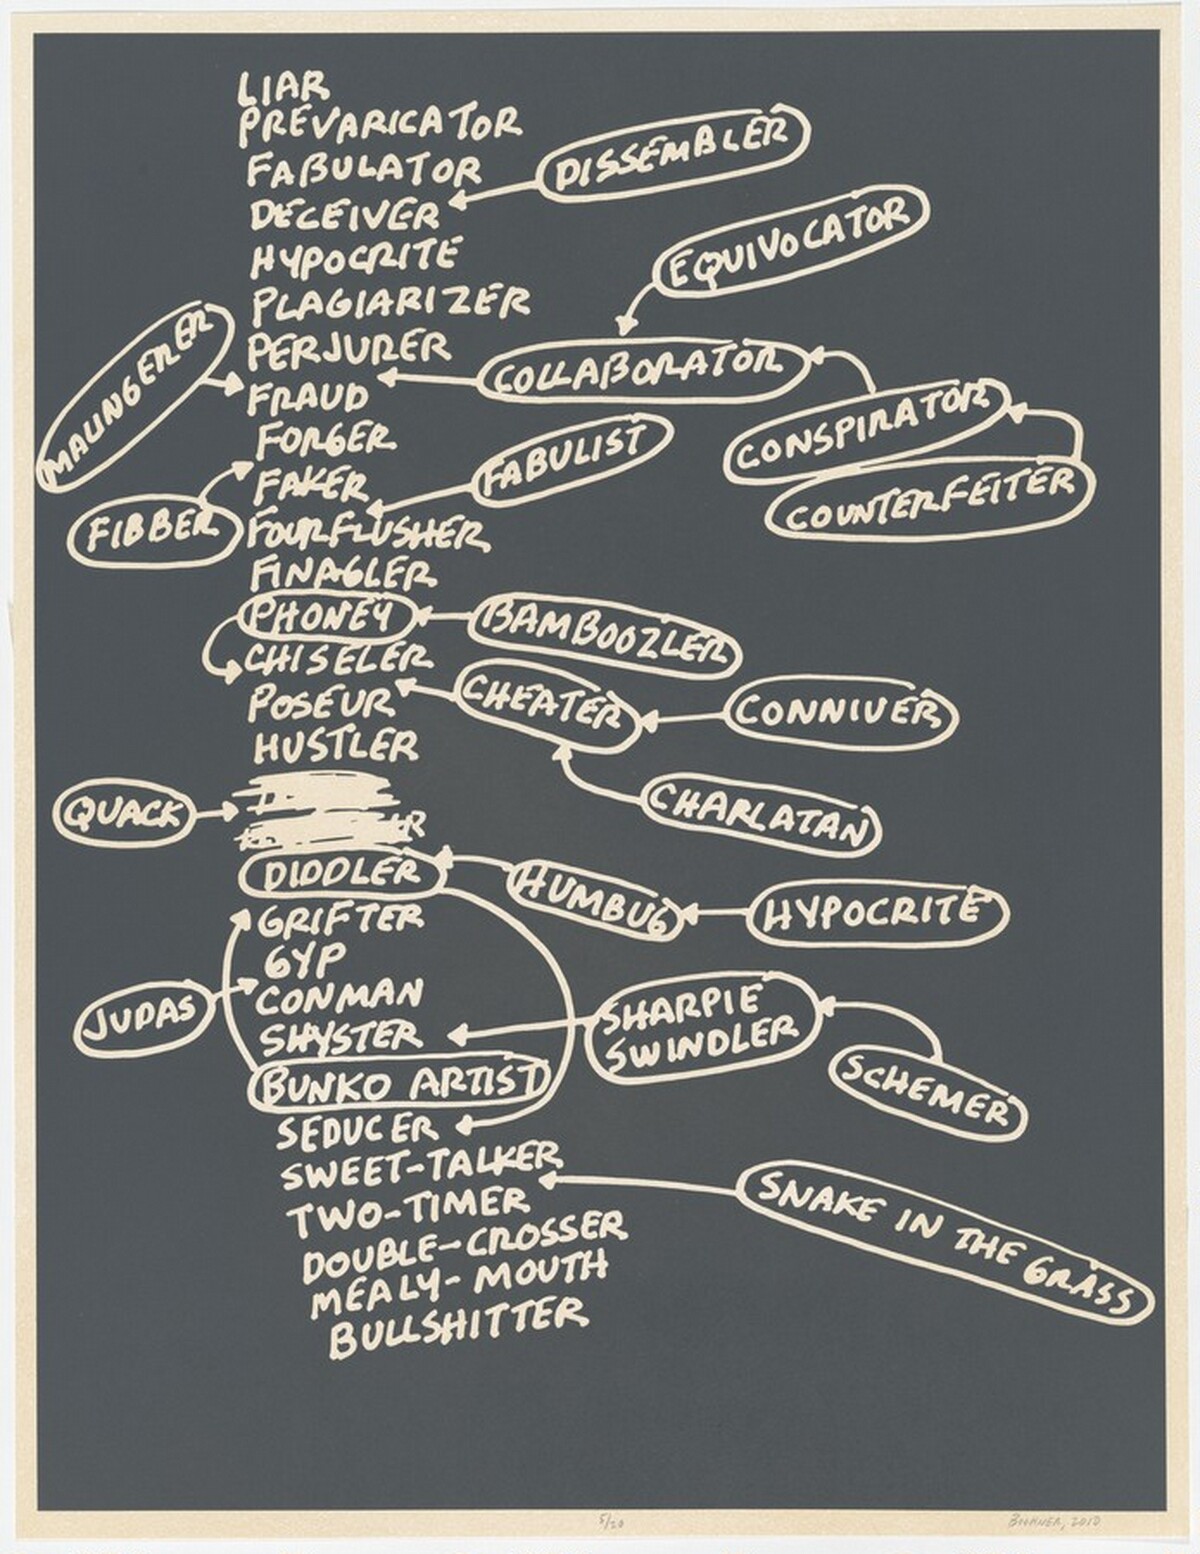 LIAR
PREVARICATOR
FABULATOR
DISSEMBLER
DECEIVER
EQUIVOCATOR
HYPOCRITE
PLAGIARIZER
PERJURER
COLLABORATOR
MALINGERER
FRAUD
CONSPIRATOR
FORGER
FABULIST
FAKER
COUNTERFEITER
FIBBER
FOURFLUSHER
FINAGLER
PHONEY
BAMBOOZLER
CHISELER
POSEUR
CHEATER
CONNIVER
HUSTLER
QUACK
CHARLATAN
DIDDLER
HUMBUG
HYPOCRITE
GRIFTER
GYP
JUDAS
CONMAN
SHYSTER
SHARPIE
SWINDLER
BUNKO ARTIST
SCHEMER
SEDUCER
SWEET-TALKER
TWO-TIMER
SNAKE IN THE GRASS
DOUBLE-CROSSER
MEALY-MOUTH
BULLSHITTER
5/20
BOCHNER, 2010